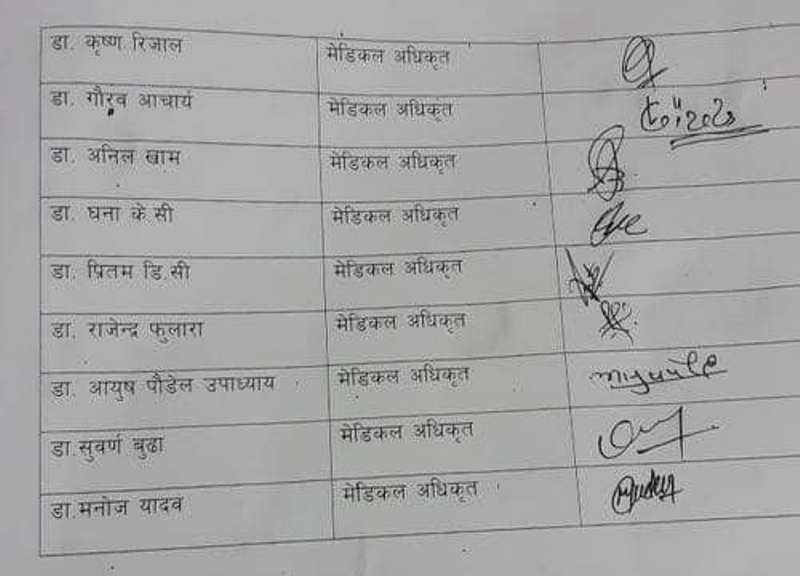 डा. कृष्ण रिजाल मेडिकल अधिकृत
डा. गौरव आचार्य मेडिकल अधिकृत
डा. अनिल खाम मेडिकल अधिकृत
डा. घना के.सी मेडिकल अधिकृत
डा. प्रितम डि.सी मेडिकल अधिकृत
डा. राजेन्द्र फुलारा मेडिकल अधिकृत
डा. आयुष पौडेल उपाध्याय मेडिकल अधिकृत
डा.सुवर्ण बुढा मेडिकल अधिकृत
डा.मनोज यादव मेडिकल अधिकृत